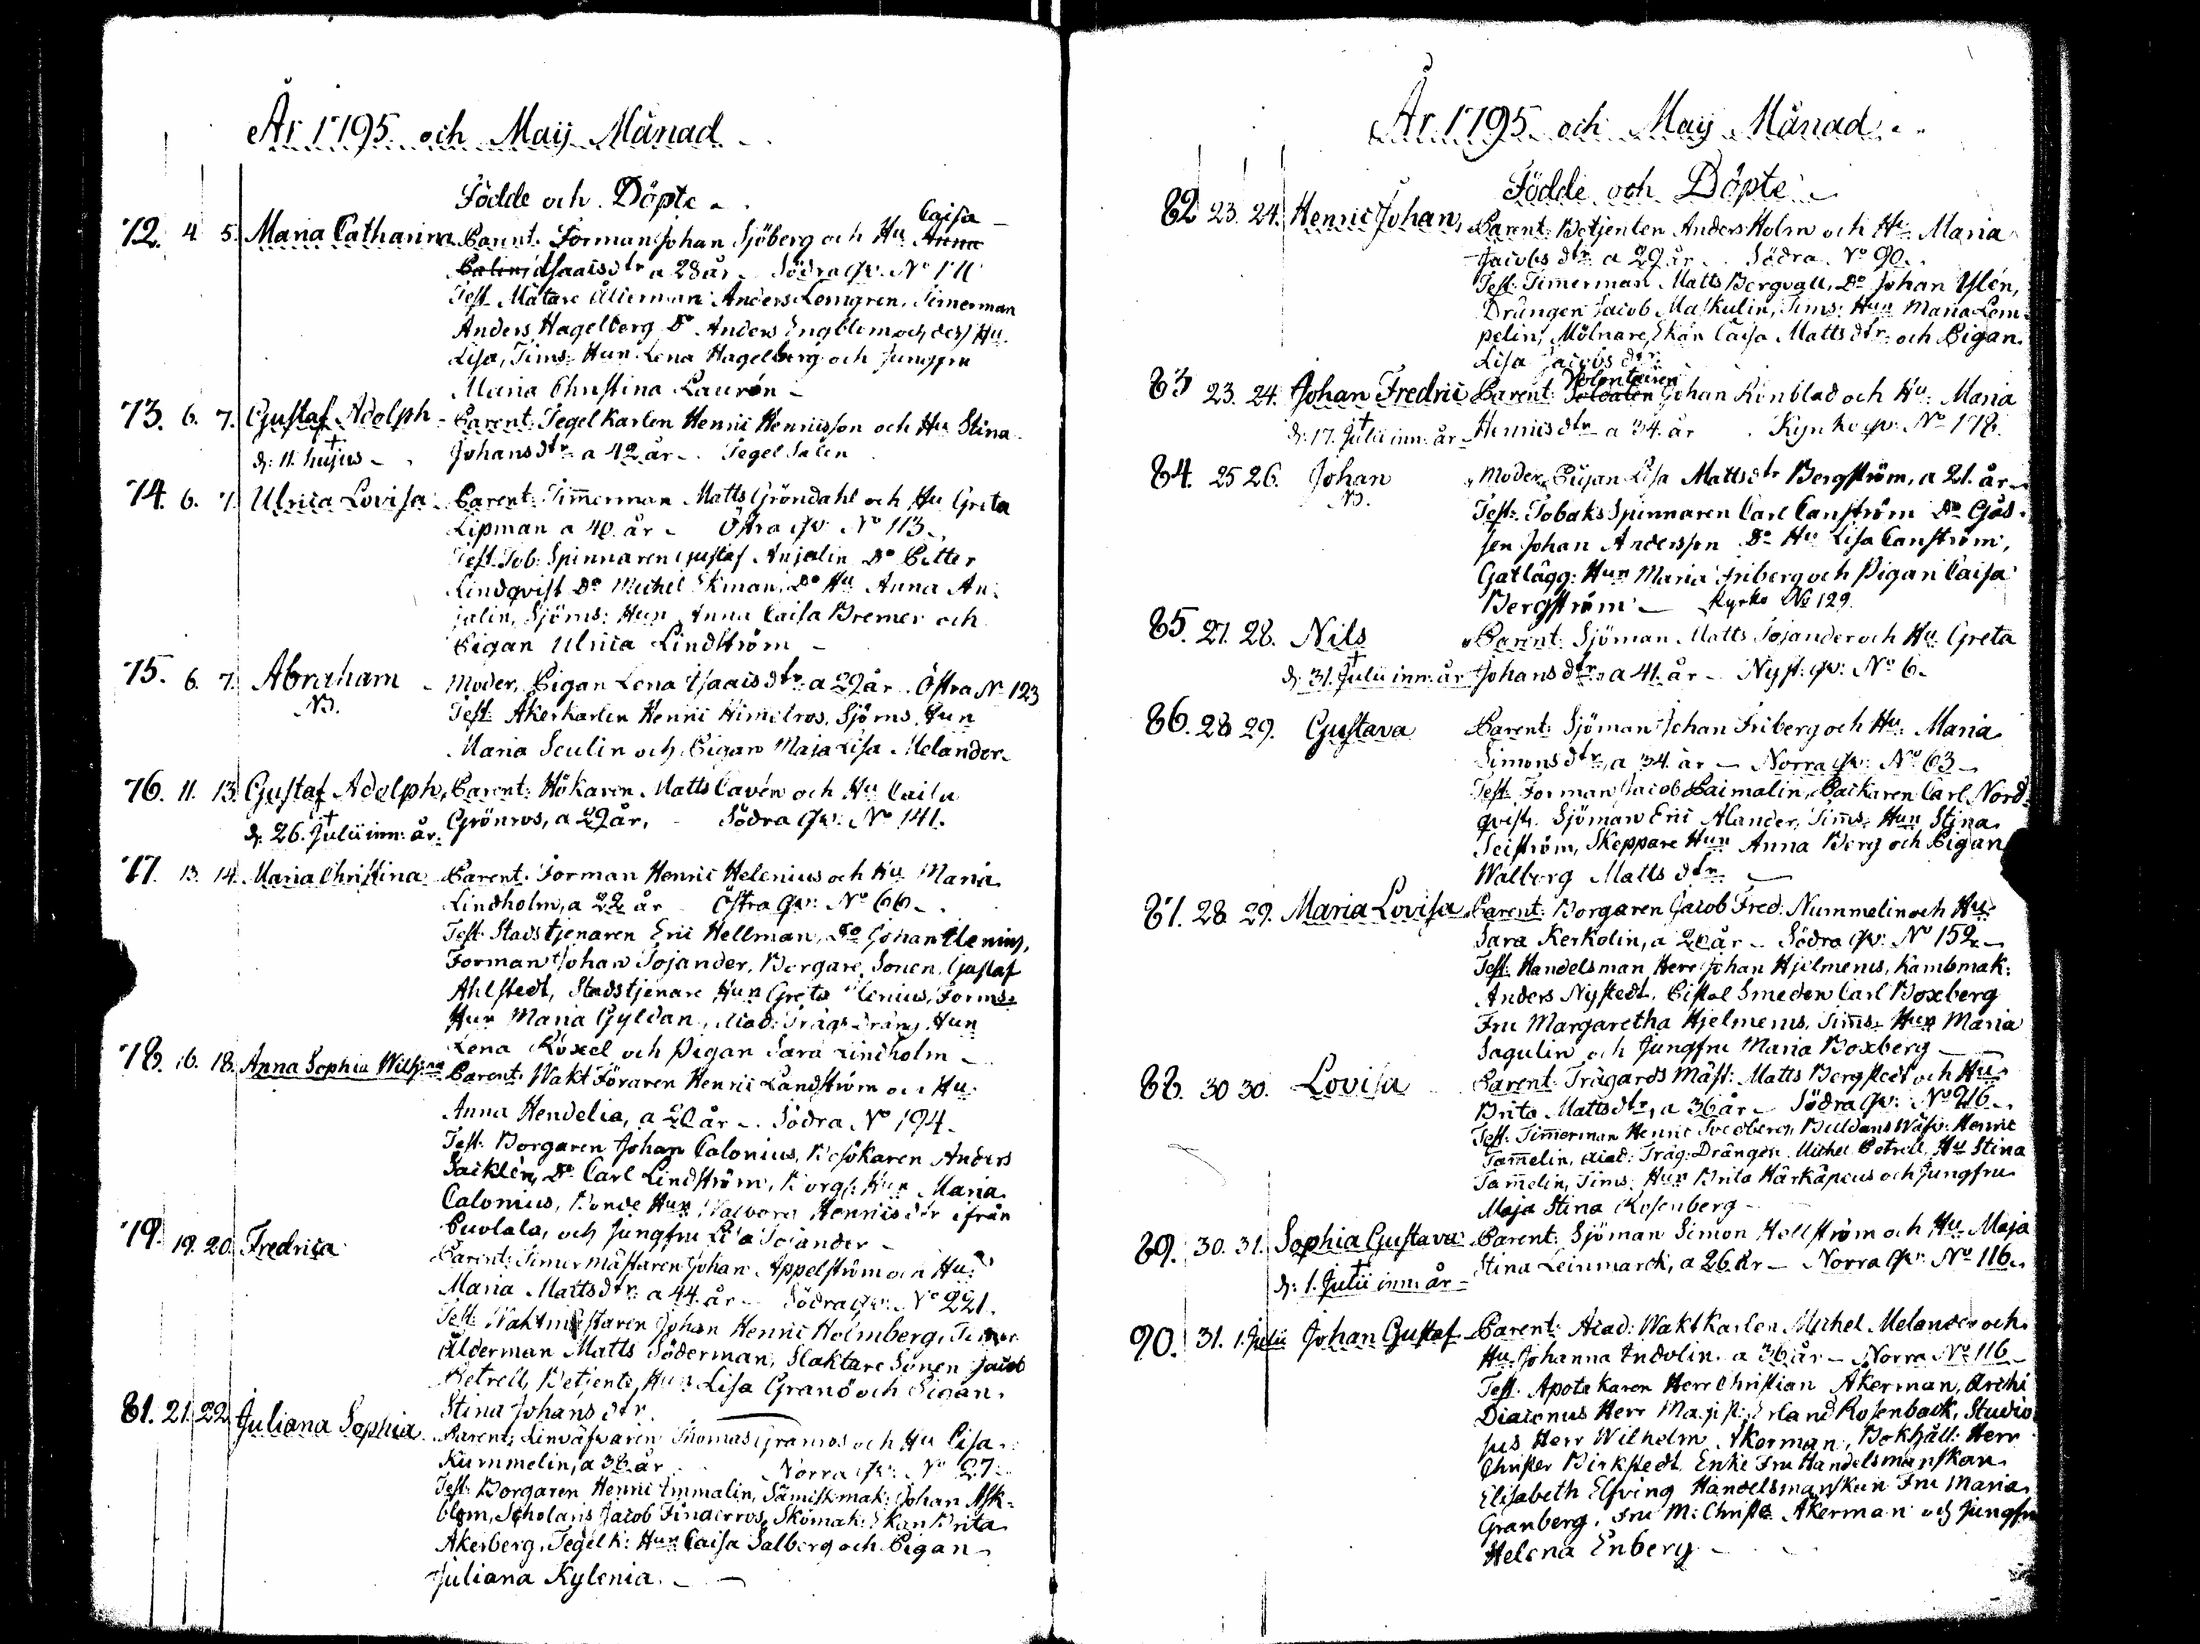 År 1795. och Maij Månad
Födde och Döpte
Caisa
72. 4 5. Maria Catharina Parent. Forman Johan Sjöberg och Hu Anna
Isaacsdtr a 28 år Södra qv. No 171
Test. Mätare Ålderman Anders Lemgren, Timerman
Anders Hagelberg Do Anders Engblom och dess Hu
Lisa, Tims: Hun Lena Hagelberg och Jungfru
Maria Christina Laurén
73. 6. 7. Gustaf Adolph Parent. Tegelkarlen Henric Henricsson och Hu Stina
d: 11. hujus Johansdtr a 42 år Tegel Salen
74. 6. 7. Ulrica Lovisa Parent: Timmerman Matts Gröndahl och Hu Greta
Lipman a 40. år Östra qv. No 113.
Test. Tob: Spinnaren Gustaf Anjalin Do Petter
Lindqvist Do Michel Ekman, Do Hu Anna An:
jalin, Sjöms: Hun Anna Caisa Bremer och
Pigan Ulrica Lindström
75. 6. 7. Abraham Moder, Pigan Lena Isaacsdtr a 29 år. Östra No 123
Test: Åkerkarlen Henric Himelros, Sjöms. Hun
Maria Seulin och Pigan Maja Lisa Melander.
76. 11. 13. Gustaf Adolph, Parent: Hökaren Matts Cavén och Hu Caisa
d: 26. Julii inn: år. Grönros, a 29 år, Södra qv: No 141.
77. 13. 14. Maria Christina Parent. Forman Henric Helenius och Hu Maria
Lindholm, a 22 år Östra qv: No 66.
Test. Stadstjenaren Eric Hellman, Do Johan Ilenius,
Forman Johan Tojander, Borgare Sonen Gustaf
Ahlstedt, Stadstjenare Hun Greta Ilenius, Forms:
Hun Maria Gyldan, Acad: Trägs dräng Hun
Lena Roxel och Pigan Sara Lindholm
78. 16. 18. Anna Sophia Wilh:na Parent. Wakt Föraren Henric Landström och Hu:
Anna Hendelia, a 20 år Södra No 194.
Test. Borgaren Johan Calonius, Besökaren Anders
Sacklén, Do Carl Lindström, Borg: Hun Maria
Calonius, Bonde Hun Walborg Henricsdtr ifrån
Cuvlala, och Jungfru Lisa Tojander
79. 19. 20. Fredrica Parent: Timermästaren Johan Appelström och Hu:
Maria Mattsdtr a 44. år Södra qv: No 221.
Test: Waktmästaren Johan Henric Holmberg, Timer
ålderman Matts Söderman, Slaktare Sonen Jacob
Petrell, Betjente Hun Lisa Granö och Pigan
Stina Johansdtr.
81. 21. 22. Juliana Sophia Parent; Linväfvaren Thomas Granros och Hu Lisa
Kummelin, a 36 år Norra qv: No 27.
Test. Borgaren Henric Immalin, Sämiskmak: Johan Ask:
blom, Scholaris Jacob Finderros, Skomak: Ekan Brita
Akerberg, Tegel k: Hun Caisa Salberg och Pigan
Juliana Kylenia.
År 1795 och Maij Månad
Födde och Döpte
82 23. 24. Henric Johan, Parent: Betjenten Anders Holm och Hu Maria
Jacobsdtr a 29 år Södra No 90.
Test: Timerman Matts Bergvall, Do Johan Uslén,
Drängen Jacob Maskulin, Tims: Hun Maria Lem
pelin, Mölnare Ekan Caisa Mattsdtr och Pigan
Lisa Jacobsdtr.
Volontairen
83 23. 24. Johan Fredric Parent: Soldaten Johan Rönblad och Hu: Maria
d: 17. Julii inn: år Henricsdtr a 34. år Kyrko qv: No 178.
84. 25 26. Johan Moder, Pigan Lisa Mattsdtr Bergström, a 21. år
Test: Tobaks Spinnaren Carl Canström Do Gås
sen Johan Andersson Do Hu Lisa Canström,
Gatlägg: Hun Maria Friberg och Pigan Caisa
Bergström Kyrko No 129.
85. 27. 28. Nils Parent: Sjöman Matts Tojander och Hu: Greta
d: 31. Julii inn: år Johansdtr a 41. år Nyst: qv: No 6.
86. 28 29. Gustava Parent: Sjöman Johan Friberg och Hu: Maria
Simonsdtr, a 34. år Norra qv: No 63
Test. Forman Jacob Paimalin, Packaren Carl Nord:
qvist. Sjöman Eric Alander, Tims. Hun Stina
Seiström, Skeppare Hun Anna Berg och Pigan
Walborg Mattsdtr
87. 28 29. Maria Lovisa Parent: Borgaren Jacob Fred: Nummelin och Hu:
Sara Kerkolin, a 20 år Södra qv: No 152.
Test: Handelsman Herr Johan Hjelmerus, Kambmak:
Anders Nystedt, Pistol Smeden Carl Boxberg
Fru Margaretha Hjelmerus, Tims. Hun Maria
Sagulin och Jungfru Maria Boxberg
88. 30 30. Lovisa Parent. Trägards Mäst: Matts Bergstedt och Hu:
Brita Mattsdtr, a 36 år Södra qv: No 216.
Test: Timmerman Henric Svedberg, Buldans Wäfv: Henric
Tammelin, Acad: Träg: Drängen Michel Petrell, Hu Stina
Tammelin, Tims: Hun Brita Härkäpeus och Jungfru
Maja Stina Rosenberg
89. 30. 31. Sophia Gustava Parent: Sjöman Simon Hellström och Hu Maja
d: 1. Julii inn: år Stina Leinmarck, a 26 år Norra qv: No 116.
90. 31. 1. Junii Johan Gustaf Parent: Acad: Waktkarlen Michel Melander och
Hu Johanna Indolin. a 36 år Norra No 116
Test. Apotekaren Herr Christian Åkerman, Archi
Diaconus Herr Magist: Erland Rosenback, Studio
sus Herr Wilhelm Åkerman, Bokhåll: Herr
Christer Birkstedt. Enke Fru Handelsmanskan
Elisabeth Elfving Handelsmanskan Fru Maria
Granberg, Fru M: Christ: Åkerman och Jungfru
Helena Enberg